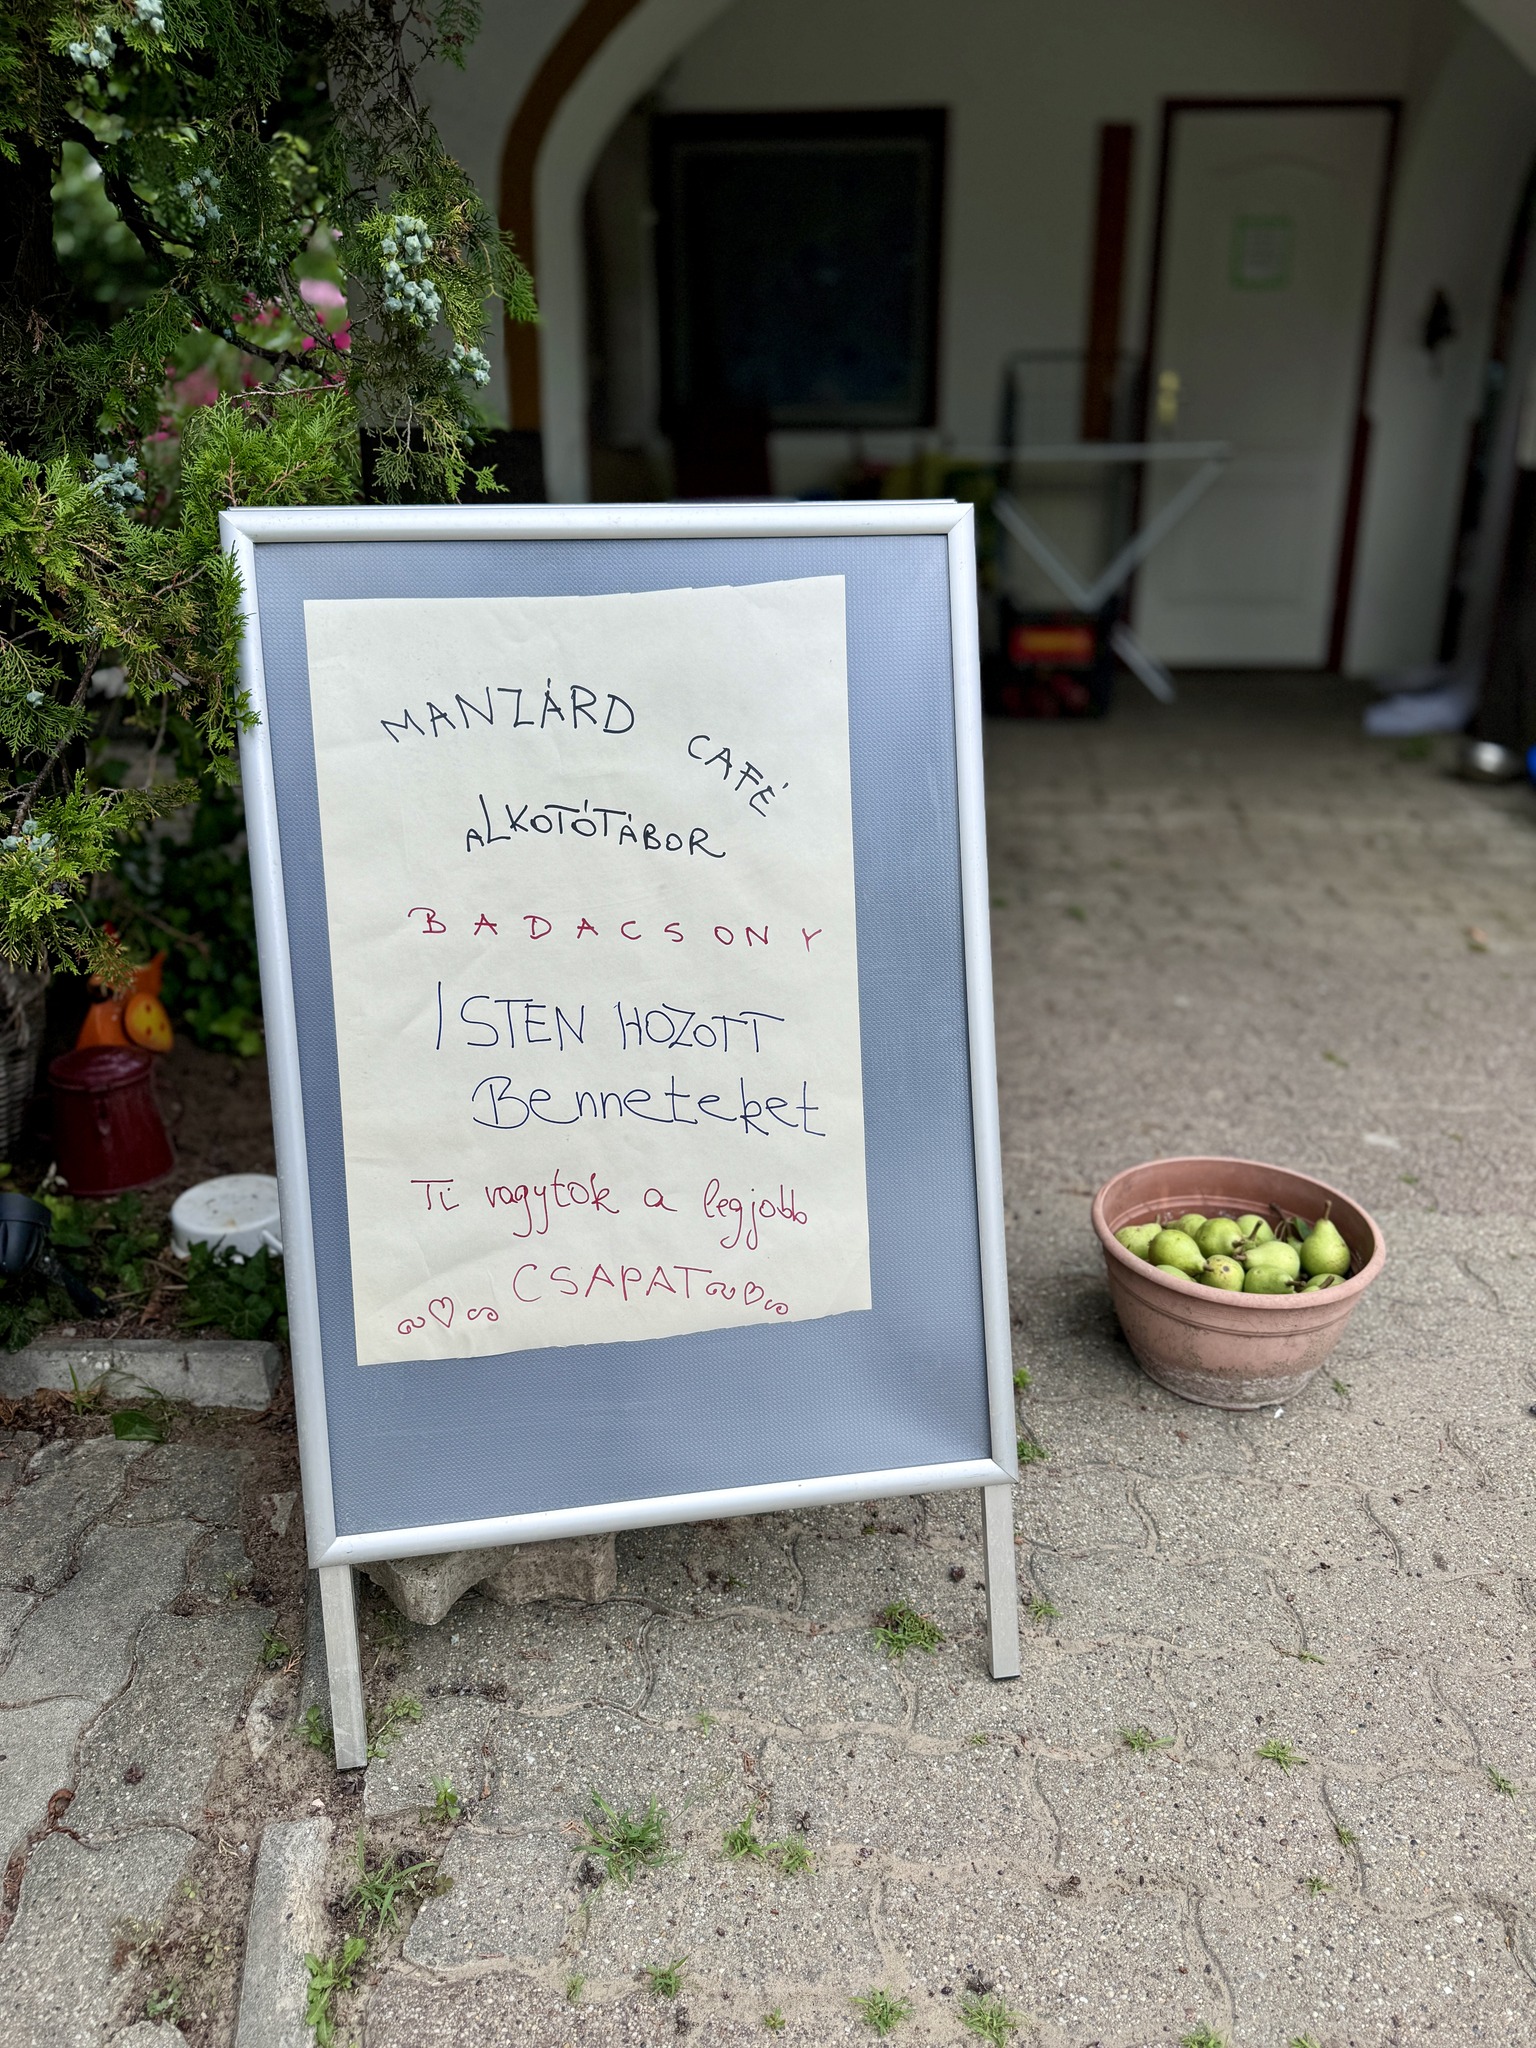 MANZÁRD CAFÉ
ALKOTÓTÁBOR
BADACSONY
ISTEN HOZOTT
Benneteket
Ti vagytok a legjobb
CSAPAT